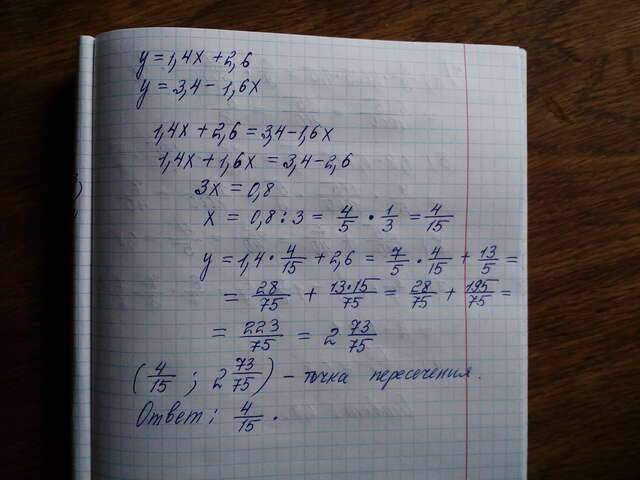 y = 1,4x + 2,6
y = 3,4 - 1,6x
1,4x + 2,6 = 3,4 - 1,6x
1,4x + 1,6x = 3,4 - 2,6
3x = 0,8
x = 0,8 : 3 = 4/5 · 1/3 = 4/15
y = 1,4 · 4/15 + 2,6 = 7/5 · 4/15 + 13/5 =
= 28/75 + 13·15/75 = 28/75 + 195/75 =
= 223/75 = 2 73/75
(4/15 ; 2 73/75) - точка пересечения.
Ответ: 4/15.